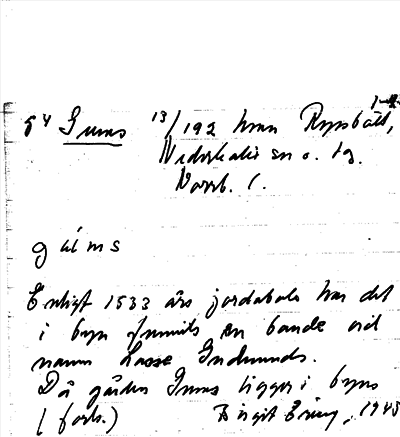 54 Gums 13/192 hmn Rysbält,
Nederkalix sn o. tg.
Norrb. l.
gálms
Enligt 1533 års jordabok har det
i byn funnits en bonde vid
namn Lasse Gudmunds.
Då gården Gums ligger i byns
(forts.) Birgit Öring, 1945